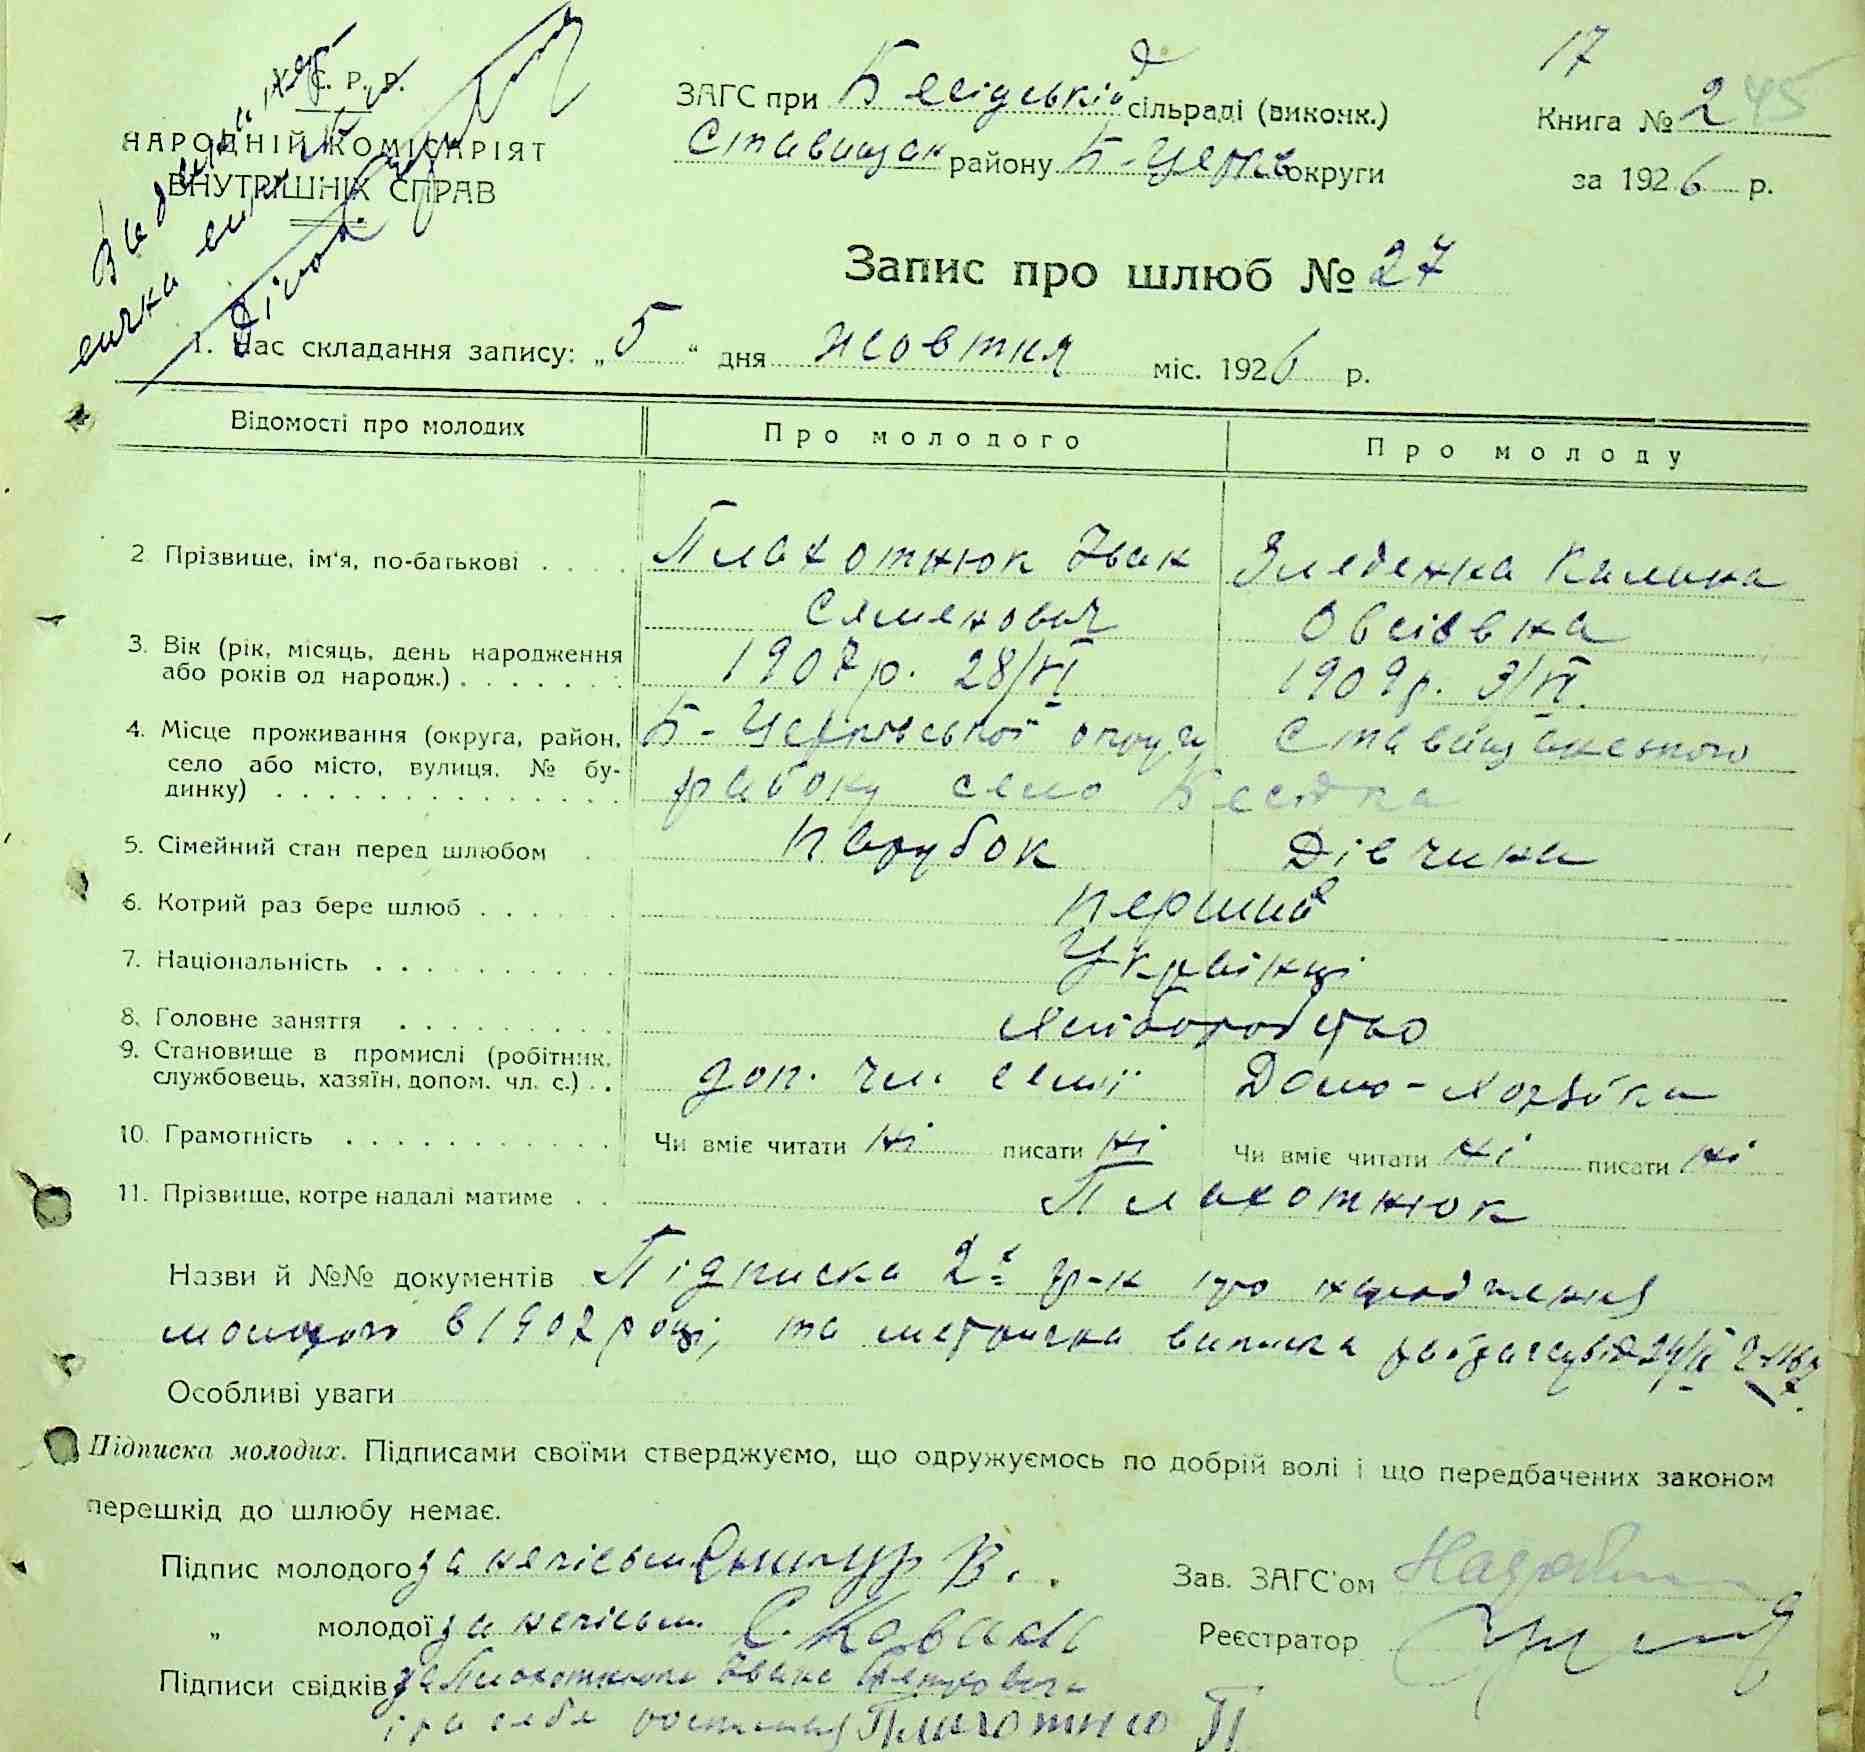 У. С. Р. Р.
НАРОДНІЙ КОМІСАРІЯТ
ВНУТРІШНІХ СПРАВ
ЗАГС при Бесідській сільраді (виконк.)
Ставищан району Б-Церків округи
17
Книга № 2 45
за 1926 р.
Запис про шлюб № 27
1. Час складання запису: „5“ дня жовтня міс. 1926 р.
Відомості про молодих
Про молодого
Про молоду
2 Прізвище, ім'я, по-батькові . . . .
Плахотнюк Іван
Семенович
Зледенна Калина
Овсіївна
3. Вік (рік, місяць, день народження
або років од народж.) . . . . . . .
1907 р. 28/VI
1909 р. 3/VI.
4. Місце проживання (округа, район,
село або місто, вулиця, № бу-
динку) . . . . . . . . . . . . . .
Б-Церківської округи Ставищанського
району село Бесідка
5. Сімейний стан перед шлюбом .
парубок
Дівчина
6. Котрий раз бере шлюб . . . . .
перший
7. Національність . . . . . . . . .
Українці
8. Головне заняття . . . . . . . .
хліборобство
9. Становище в промислі (робітник,
службовець, хазяїн, допом. чл. с.) . .
доп. чл. семії
Домо-хозяйка
10. Грамотність . . . . . . . . . . .
Чи вміє читати ні писати ні
Чи вміє читати ні писати ні
11. Прізвище, котре надалі матиме . .
Плахотнюк
Назви й №№ документів Підписка 2х гр-н про народження
молодого в 1907 році, та метрична виписка
Особливі уваги
Підписка молодих. Підписами своїми стверджуємо, що одружуємось по добрій волі і що передбачених законом
перешкід до шлюбу немає.
Підпис молодого за неписьм. В.
„ молодої за неписьм. С. Коваль
Зав. ЗАГС'ом
Реєстратор
Підписи свідків за Плахотнюка Івана
і за себе Плахотнюк П